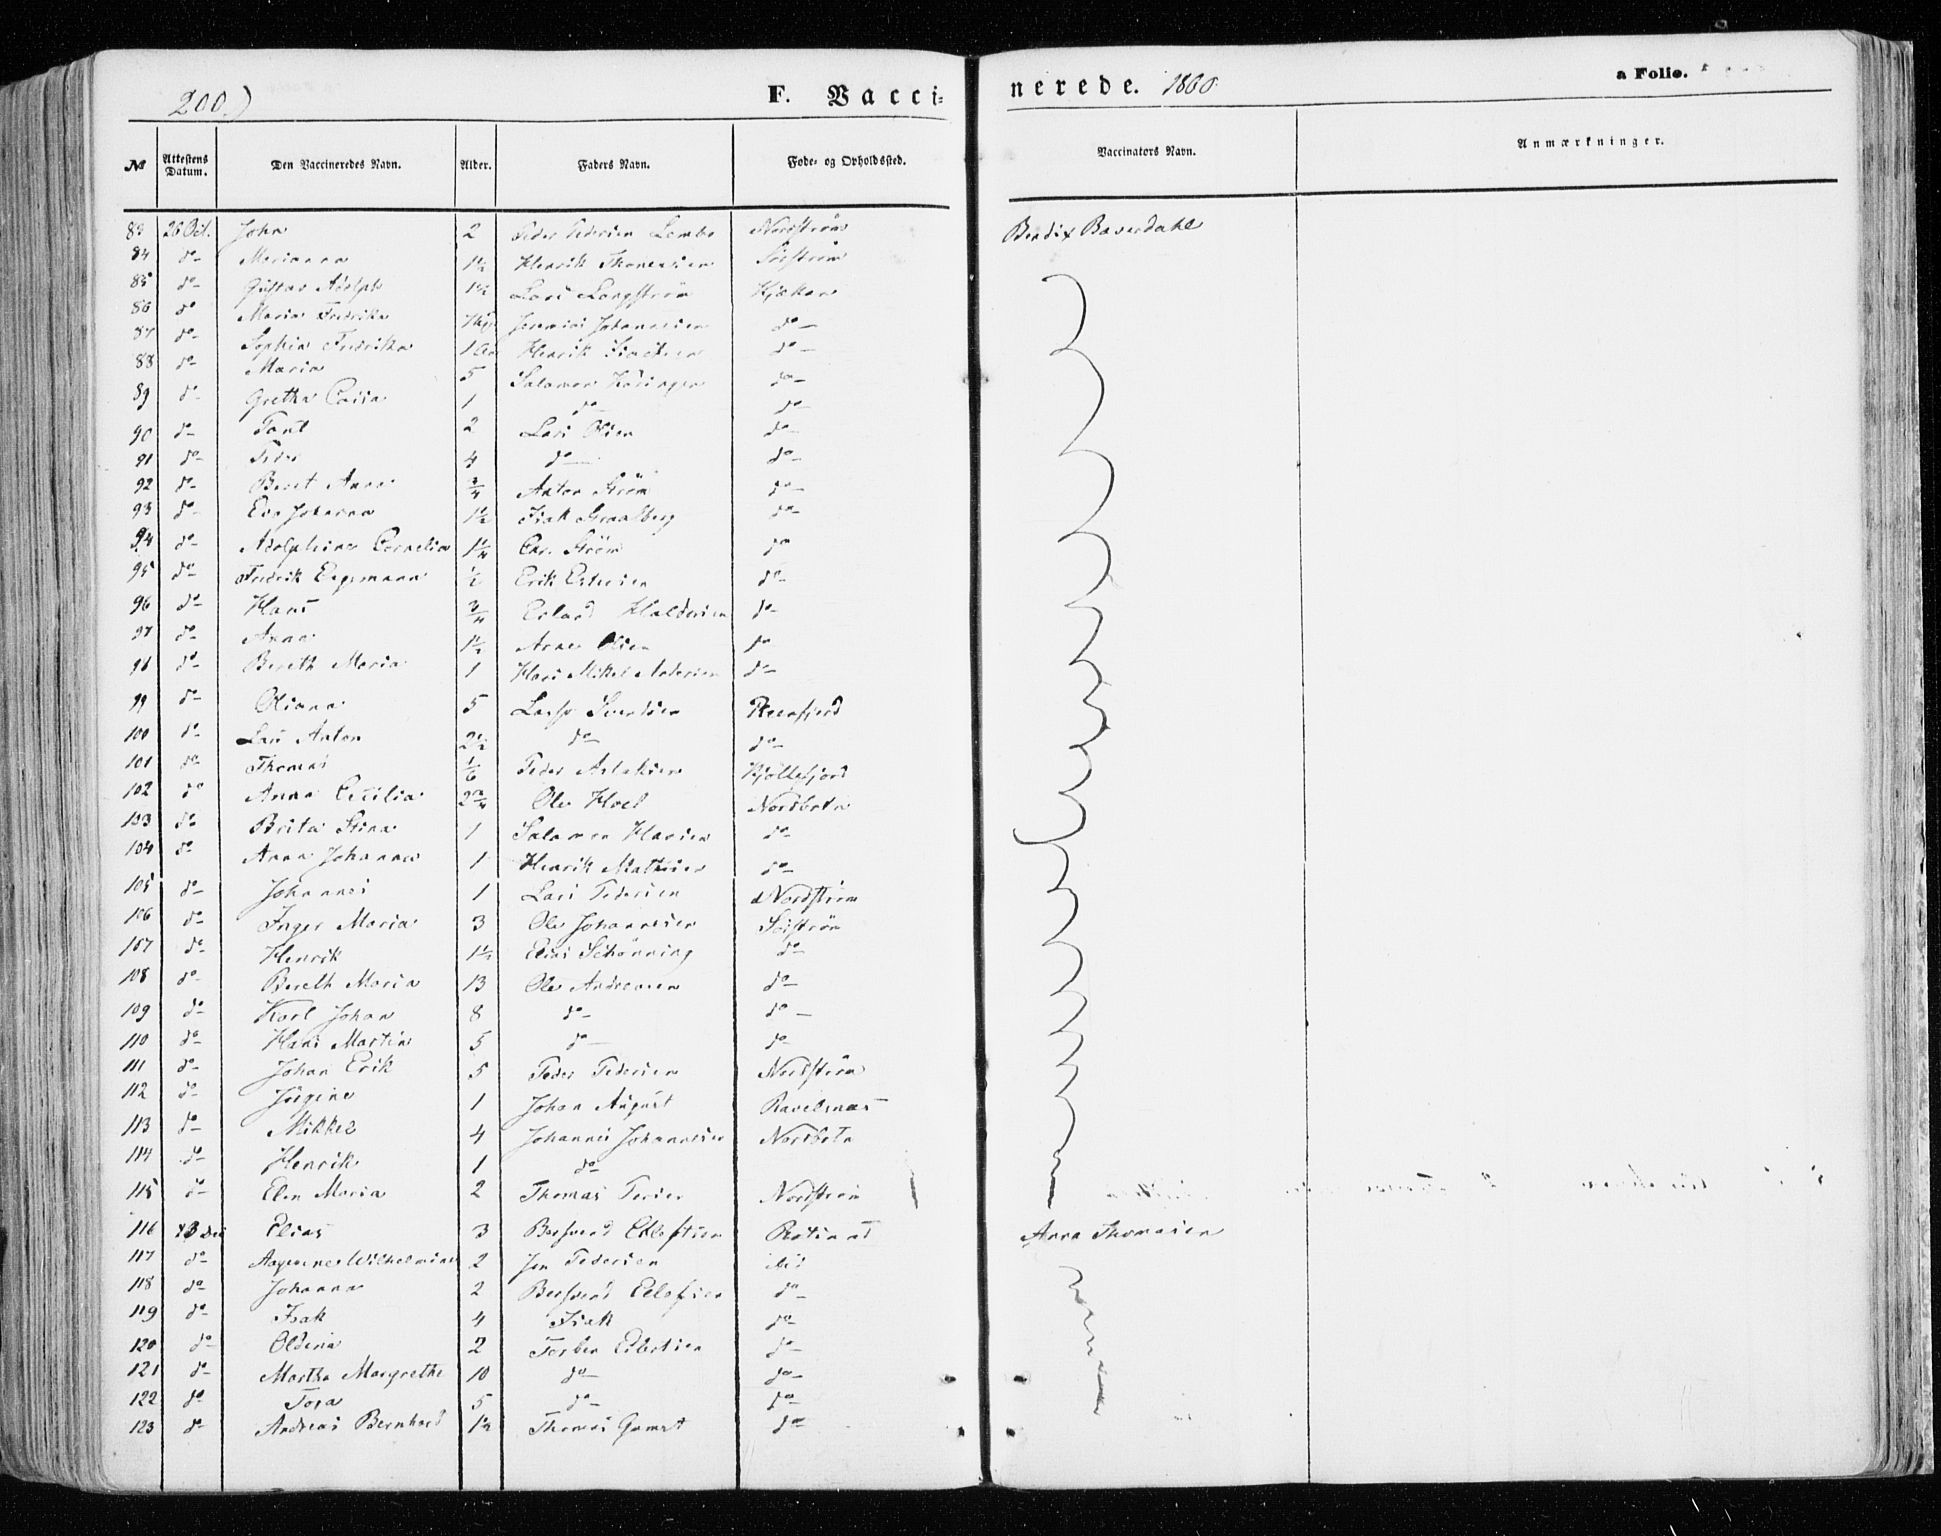 200.) F. Vacci= nerede. 1860 a Folio.
№ Attestens Datum. Den Vaccineredes Navn. Alder. Faders Navn. Føde- og Opholdssted. Vaccinators Navn. Anmærkninger.
83 26 Oct. John 2 Peder Pedersen Lembo Nordstrøm Bendix Baverdahl
84 do Marianna 1½ Henrik Thomassen Sørstrøm
85 do Gustav Adolph 1½ Lars Langstrøm Kjækan
86 do Maria Fredrika Jeremias Johannesen do
87 do Sophia Fredrikka 1 Henrik do
88 do Maria 5 Salamon do
89 do Gretha Caisa 1 do do
90 do Paul 2 Lars Olsen do
91 do Peder 4 do do
92 do Beret Anna ¾ Anton Strøm do
93 do Eva Johanna 1½ Isak Graalberg do
94 do Adolphine Cornelia 1¼ Chr. Strøm do
95 do Fredrik Engemann ½ Erik do
96 do Hans ¾ Erland Haldorsen do
97 do Anna 1½ Arne Olsen do
98 do Bereth Maria 1 Hans Mikel Andersen do
99 do Oliana 5 Svendsen
100 do Lars Anton 2½ do do
101 do Thomas 1/6 Peder Aslaksen Kjøllefjord
102 do Anna Cecilia 2¾ Ole Hoel Nordbotn
103 do Brita Stina 1 Salamon Hansen do
104 do Anna Johanna 1 Henrik Mathisen do
105 do Johannes 1 Lars Pedersen Nordstrøm
106 do Inger Maria 3 Ole Johannesen Sørstrøm
107 do Henrik 1½ Elias Schønning do
108 do Bereth Maria 13 Ole Andreasen do
109 do Karl Johan 8 do do
110 do Hans Martin 5 do do
111 do Johan Erik 5 Peder Pedersen Nordstrøm
112 do Jørgine 1 Johan August Ravelsnæs
113 do Mikkel 4 Johannes Johannesen Nordbotn
114 do Henrik 1 do
115 do Elen Maria 2 Thomas Nordstrøm
116 13 Elias 3 Bersvend Ellefsen Anna Thomasen
117 do Wilhelmine 2 Jon Pedersen
118 do Johanna 2 Bersvend Ellefsen do
119 do Isak 4 Isak do
120 do Oldine 2 Torben do
121 do Martha Margrethe 10 do do
122 do Tora 5 do do
123 do Andreas Bernhard 1½ Thomas do